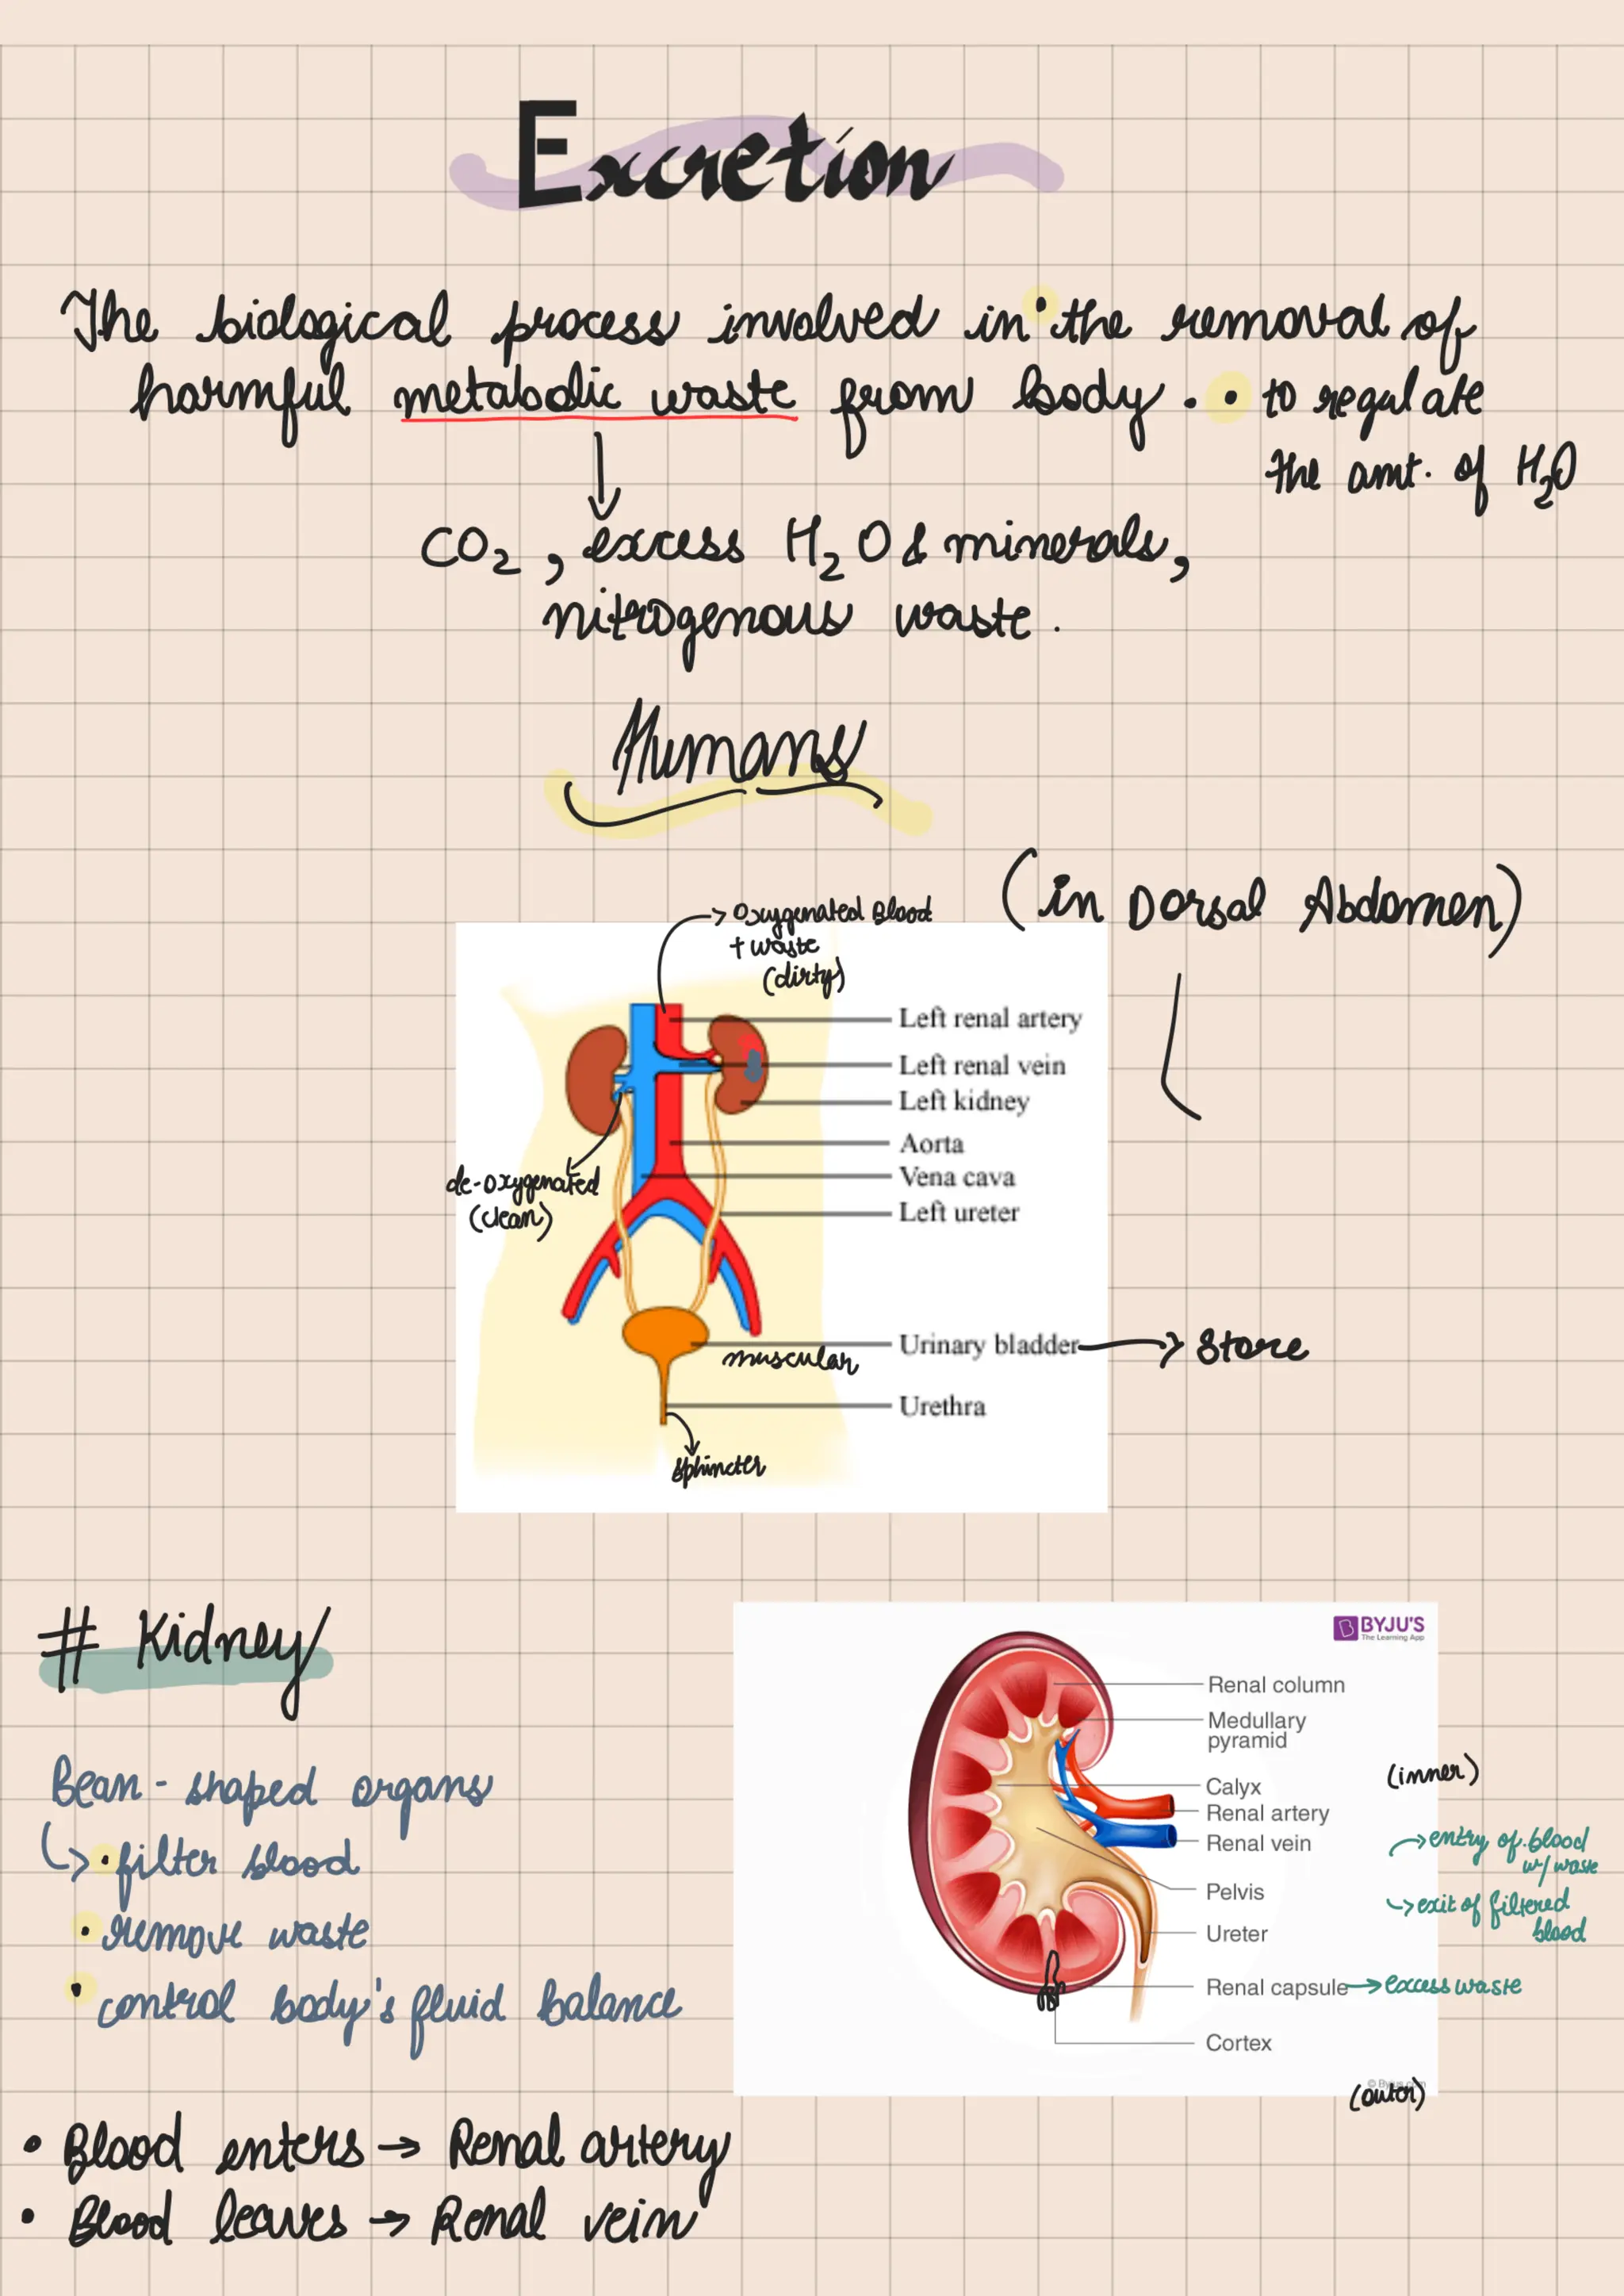 Excretion
The biological process involved in • the removal of
harmful metabolic waste from body . • to regulate
the amt. of H₂O
CO₂ , excess H₂O & minerals,
nitrogenous waste .
Humans
(in Dorsal Abdomen)
→ Oxygenated Blood
+ waste
(dirty)
Left renal artery
Left renal vein
Left kidney
Aorta
Vena cava
Left ureter
de-oxygenated
(clean)
Urinary bladder → Store
muscular
Urethra
sphincter
# Kidney
Bean-shaped organs
↳ • filter blood
• remove waste
• control body's fluid balance
BYJU'S
The Learning App
Renal column
Medullary
pyramid
(inner)
Calyx
Renal artery → entry of blood
w/ waste
Renal vein
Pelvis → exit of filtered
blood
Ureter
Renal capsule → excess waste
Cortex
(outer)
• Blood enters → Renal artery
• Blood leaves → Renal vein